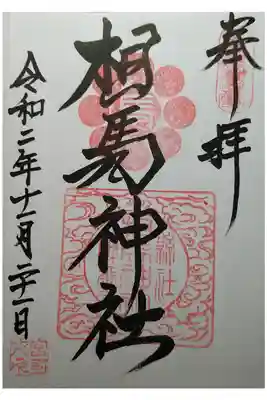 奉拝
相馬神社
令和二年十一月二十一日